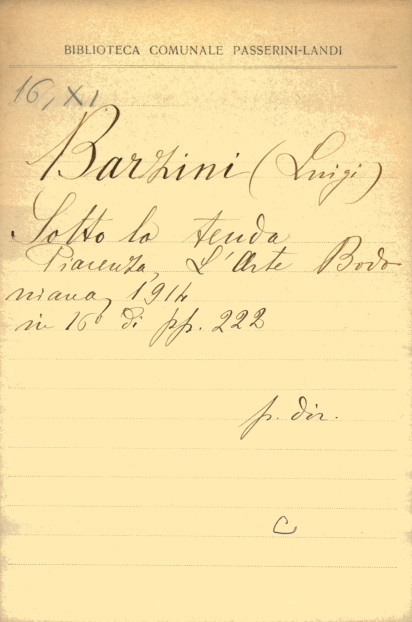 BIBLIOTECA COMUNALE PASSERINI-LANDI
16, XI
Barzini (Luigi)
Sotto la tenda
Piacenza, L'Arte Bodo
niana, 1914
in 16° di pp. 222
p. dir.
C